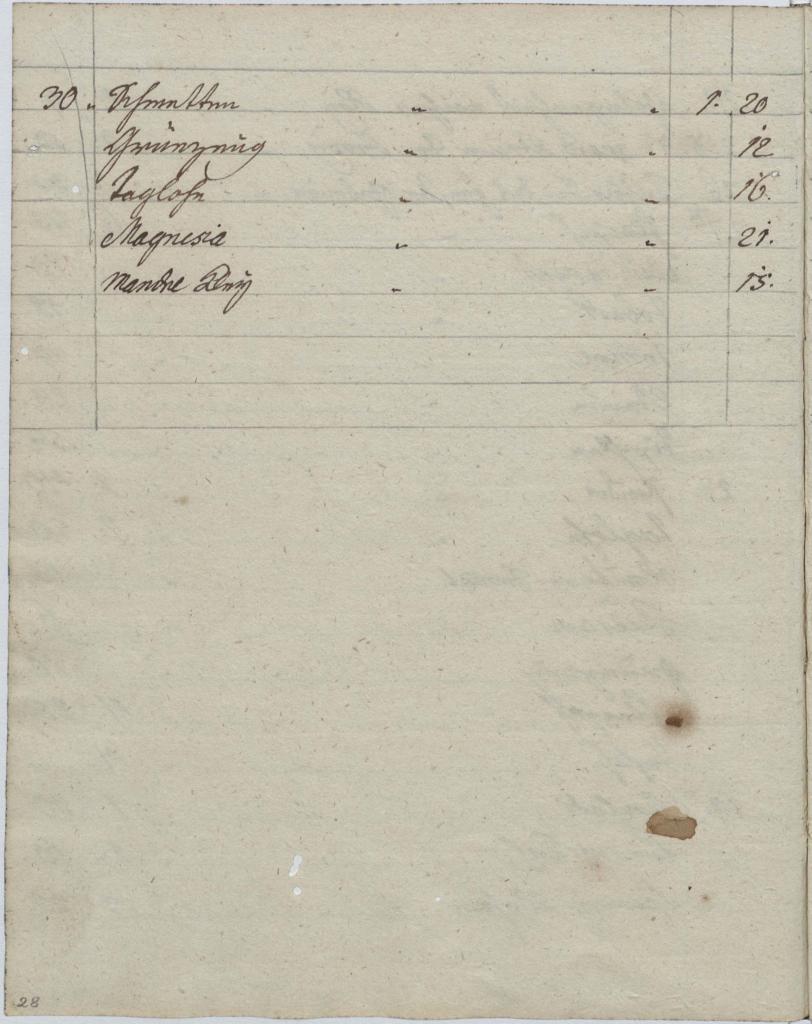 30. Schmetten " " 1. 20
Grünzeug " " 12
Taglohn " " 16.
Magnesia " " 21.
Mandel " " 15.
28